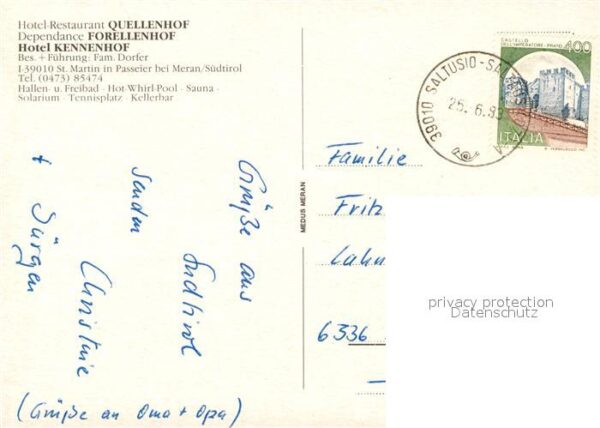 Hotel-Restaurant QUELLENHOF
Dependance FORELLENHOF
Hotel KENNENHOF
Bes. + Führung: Fam. Dorfer
I-39010 St. Martin in Passeier bei Meran/Südtirol
Tel. (0473) 85474
Hallen- u. Freibad · Hot Whirl-Pool · Sauna ·
Solarium · Tennisplatz · Kellerbar
Grüße aus
Südtirol
senden
Christine
+ Jürgen
(Grüße an Oma + Opa)
MEDUS MERAN
CASTELLO
DELL'IMPERATORE · PRATO
400
ITALIA
39010 SALTUSIO-
25. 6.
Familie
Fritz
Lahn
6336
privacy protection
Datenschutz